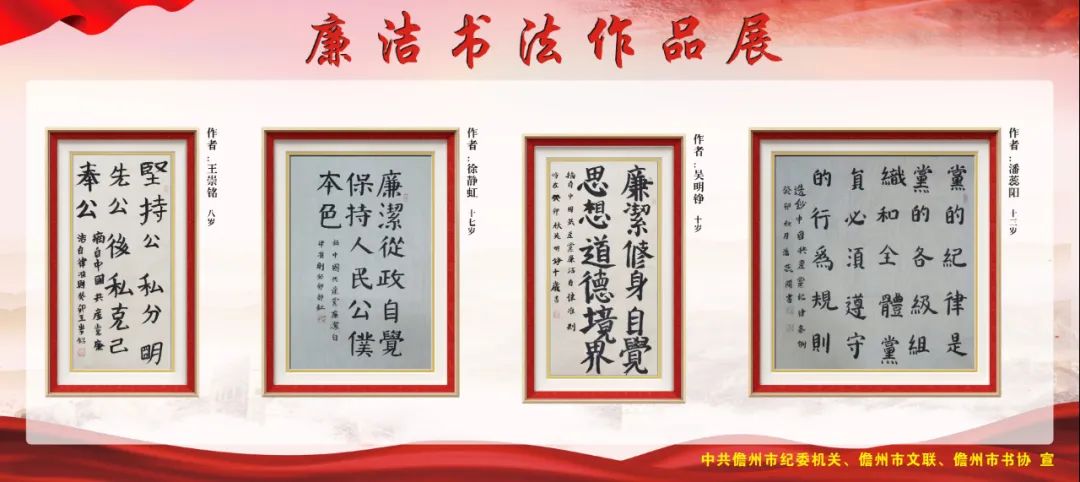 廉洁书法作品展
堅持公私分明
先公後私克己
奉公
摘自中國共產黨廉
洁自律准则癸卯王崇铭
作者：王崇铭 八岁
廉潔從政自覺
保持人民公僕
本色
摘中國共產黨廉潔自
律準則癸卯静虹
作者：徐静虹 十七岁
廉潔修身自覺
思想道德境界
摘自中國共產黨廉洁自律准则
癸卯秋吴明铮十歲書
作者：吴明铮 十岁
黨的紀律是
黨的各級組
織和全體黨
員必須遵守
的行為規則
选抄中国共產黨纪律条例
癸卯秋月潘蕊陽書
作者：潘蕊阳 十二岁
中共儋州市纪委机关、儋州市文联、儋州市书协 宣